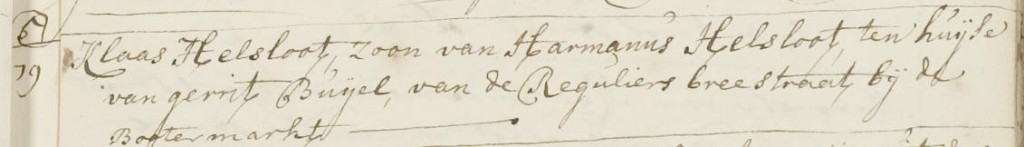 Klaas Helsloot, zoon van Harmanus Helsloot, ten huijse
79 van gerrit Buijel, van de Reguliers breestraat bij de
Botermarkt